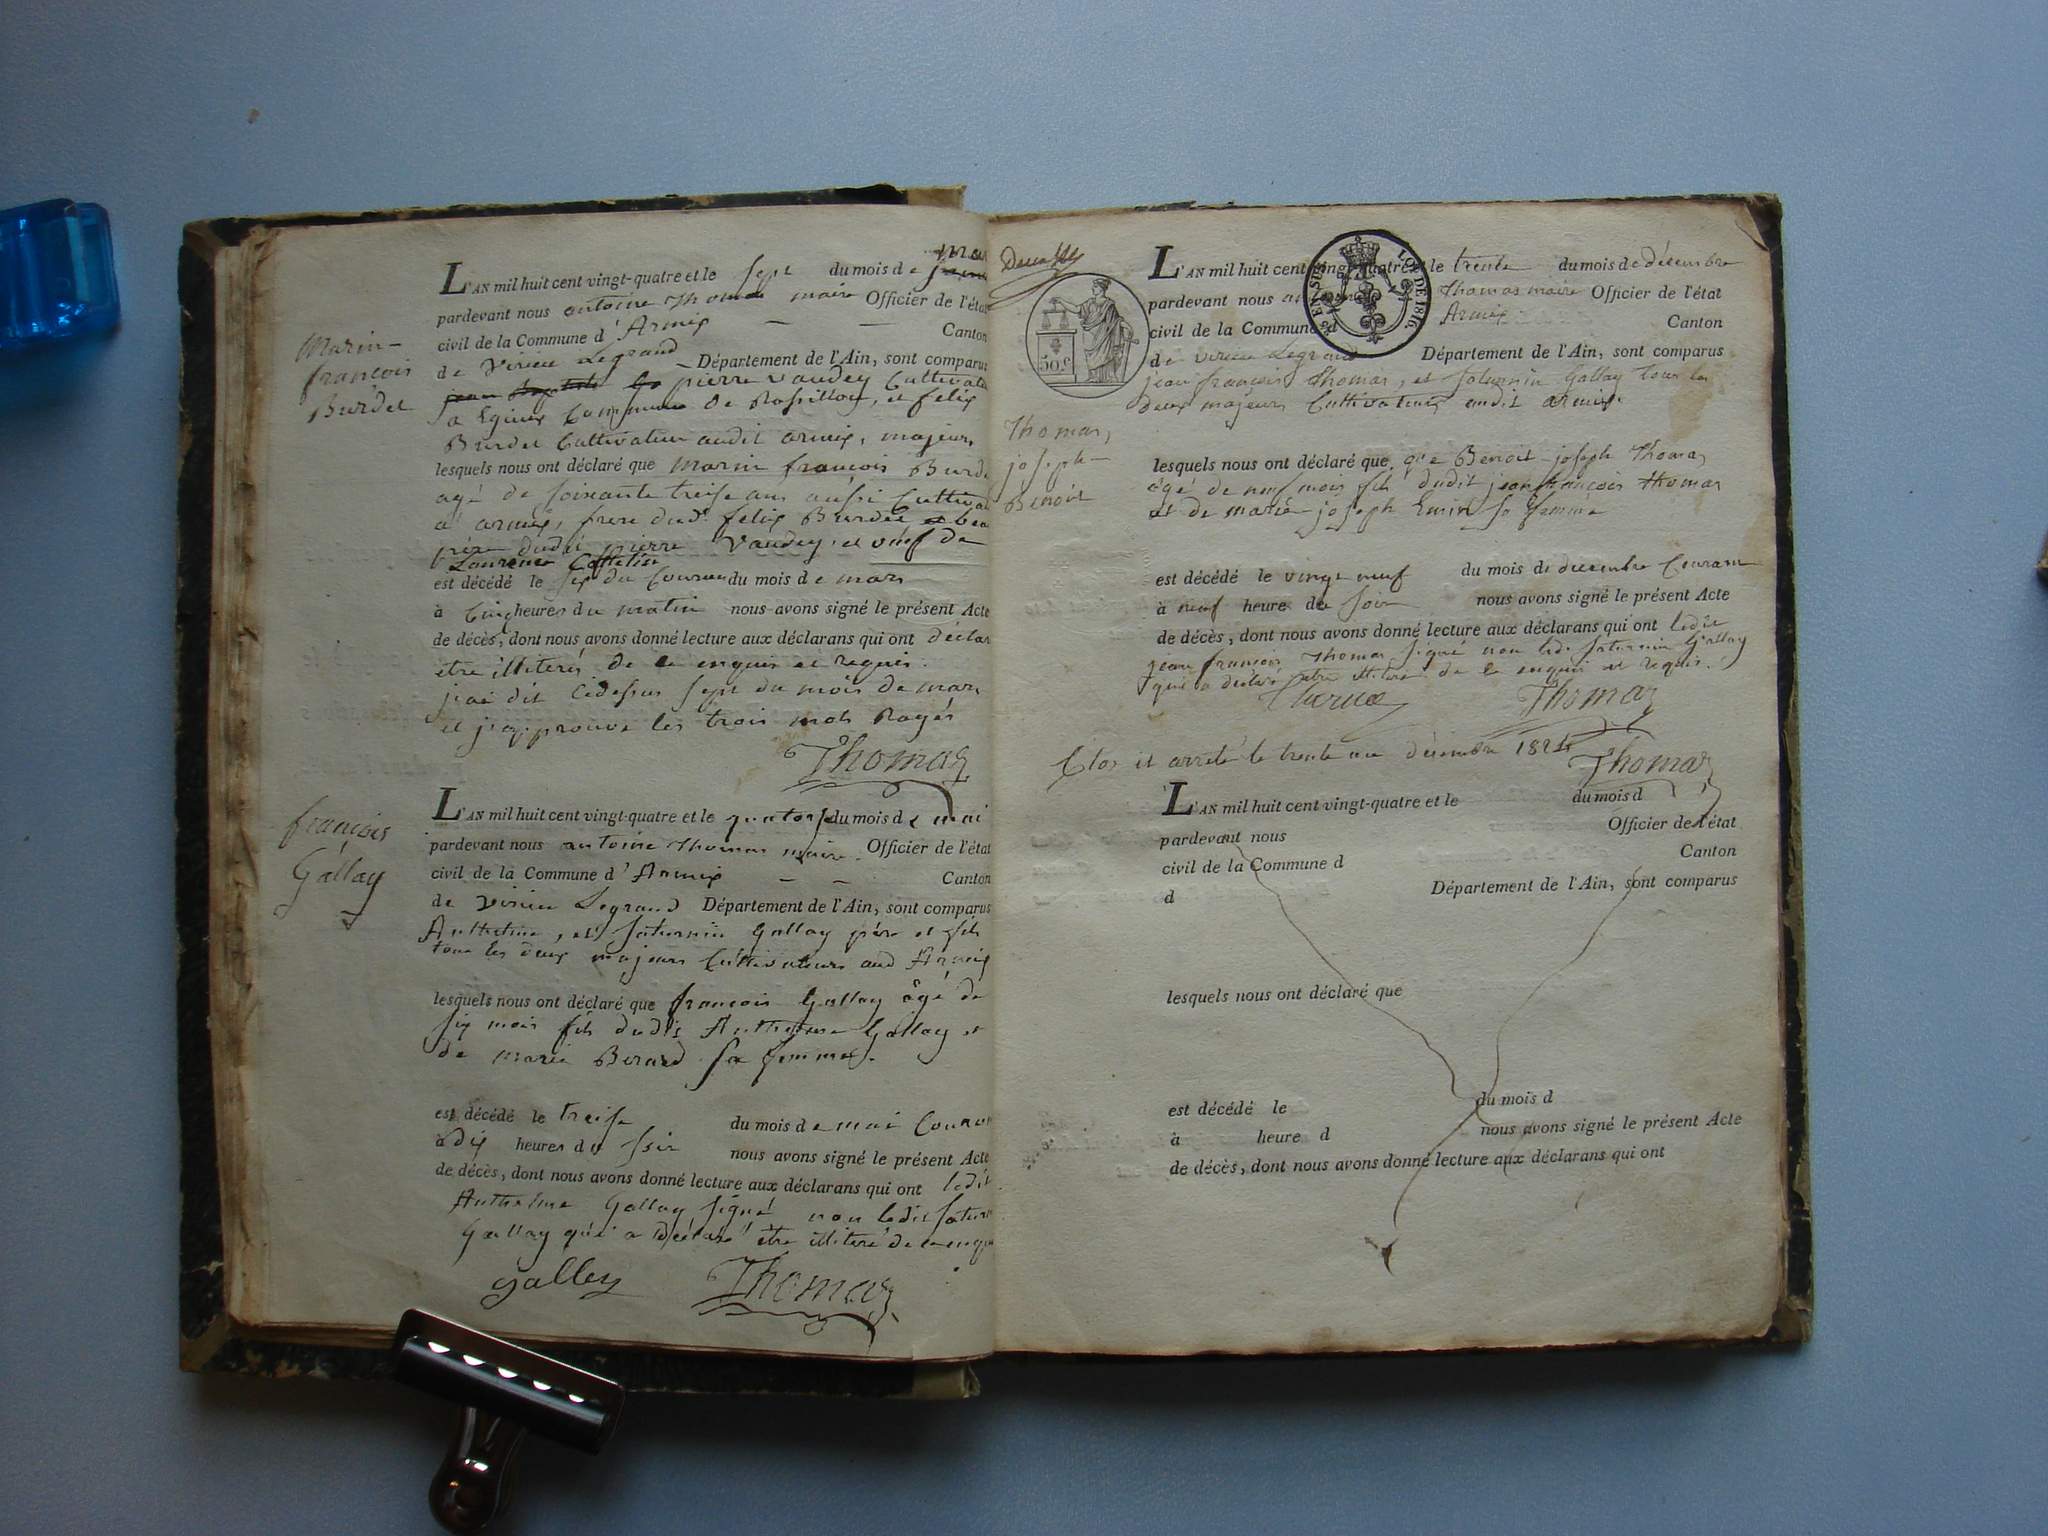 Marin-
françois
Burdet
mars
L'AN mil huit cent vingt-quatre et le sept du mois de
pardevant nous antoine Thomas maire Officier de l'état
civil de la Commune d'Armix — — Canton
de Virieu Legrand — Département de l'Ain, sont comparus
pierre Vaudey
a Egieux Commune De Rossillon, et felix
Burdet Cultivateur audit armix, majeurs
lesquels nous ont déclaré que Marin françois Burde
agé de soixante treise ans aussi Cultiva
a armix, frere dudt felix Burdet et beau
père dudit pierre Vaudey, et veuf de
Laurence
est décédé le six du Courant du mois de mars
à Cinq heures du matin nous avons signé le présent Acte
de décès, dont nous avons donné lecture aux déclarans qui ont déclar
etre illiterés de ce enquis et requis.
j'ai dit Cidessus sept du mois de mars
et j'approuve les trois mots Rayés
Thomas
françois
Gallay
L'AN mil huit cent vingt-quatre et le quatorse du mois de mai
pardevant nous antoine Thomas maire Officier de l'état
civil de la Commune d'Armix — — Canton
de Virieu Legrand Département de l'Ain, sont comparus
Anthelme, et Saturnin Gallay père et fils
tous les deux majeurs Cultivateurs aud Armix
lesquels nous ont déclaré que françois Gallay âgé de
six mois fils dudit Anthelme Gallay et
de marie Berard sa femme.
est décédé le treise du mois de mai Couran
à dix heures du soir nous avons signé le présent Acte
de décès, dont nous avons donné lecture aux déclarans qui ont ledit
Anthelme Gallay signé non ledit Saturn
Gallay qui a Déclaré être illiteré de ce enqui
galley Thomas
50c.
2e EN SUS LOI DE 1816.
Thomas,
joseph-
Benoit
L'AN mil huit cent vingt-quatre et le trente du mois de décembre
pardevant nous Thomas maire Officier de l'état
civil de la Commune d Armix Canton
de virieu Legrand Département de l'Ain, sont comparus
jean françois Thomas, et Saturnin Gallay tous les
deux majeurs Cultivateurs audit armix.
lesquels nous ont déclaré que, que Benoit joseph Thomas
âgé de neuf mois fils dudit jean françois Thomas
et de marie joseph sa femme
est décédé le vingt neuf du mois de décembre Courant
à neuf heure du soir nous avons signé le présent Acte
de décès, dont nous avons donné lecture aux déclarans qui ont ledit
jean françois Thomas signé non ledi Saturnin Gallay
qui a déclaré etre illiteré de ce enquis et requis.
Thomas
Clos et arrêté le trente un décembre 1824 Thomas
L'AN mil huit cent vingt-quatre et le du mois d
pardevant nous Officier de l'état
civil de la Commune d Canton
d Département de l'Ain, sont comparus
lesquels nous ont déclaré que
est décédé le du mois d
à heure d nous avons signé le présent Acte
de décès, dont nous avons donné lecture aux déclarans qui ont